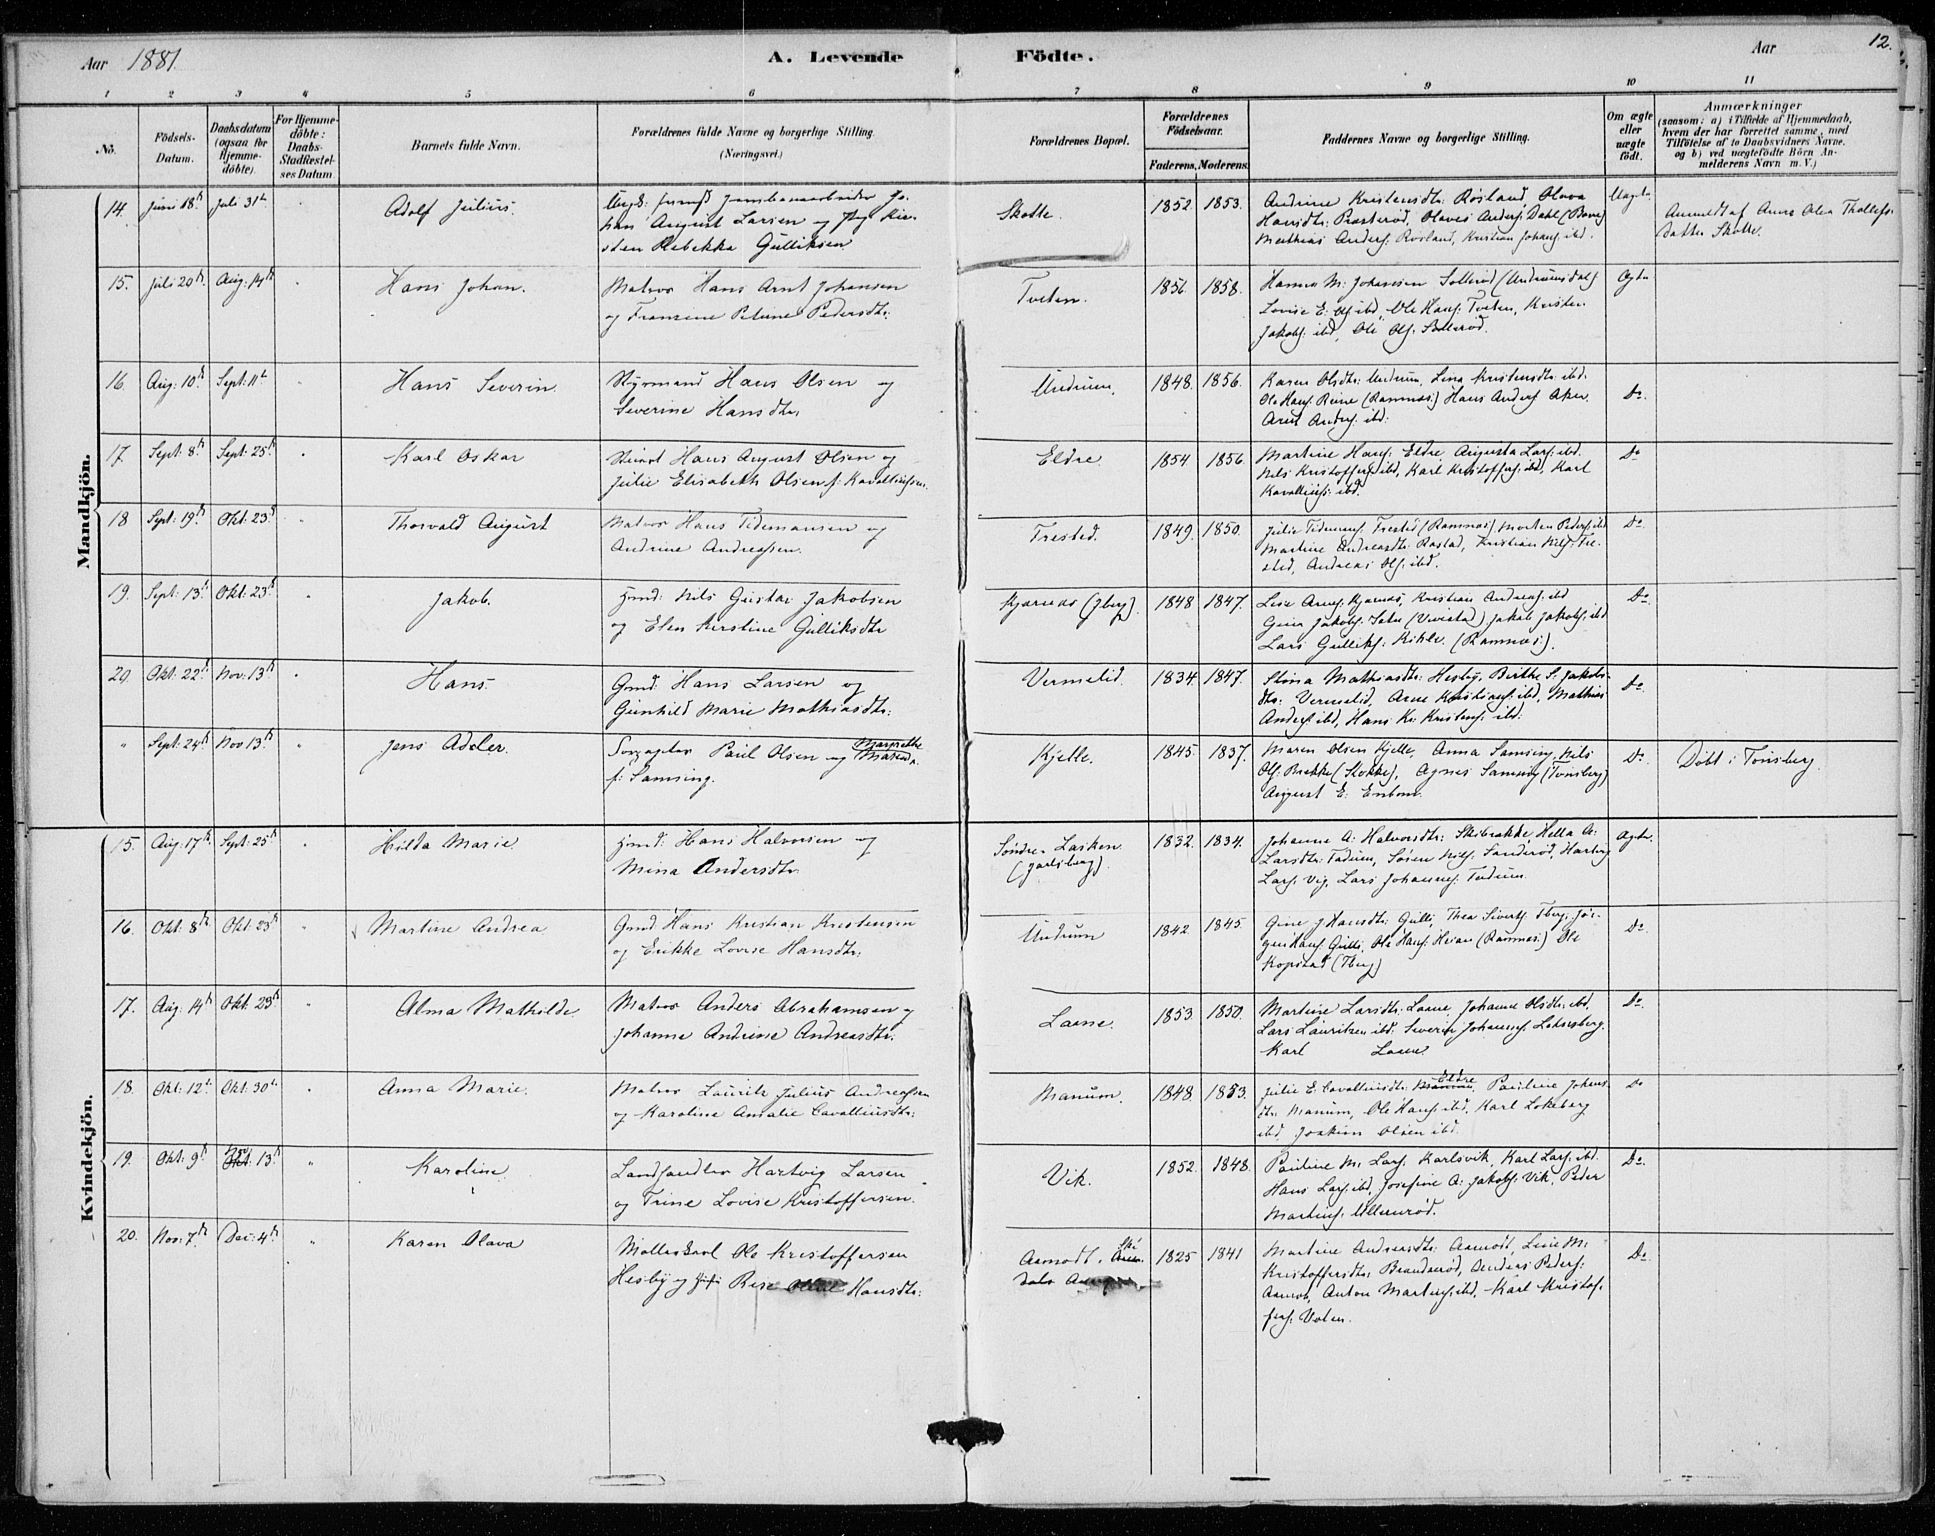 Aar 1881. A. Levende Födte. Aar 12.
1 2 3 4 5 6 7 8 9 10 11
No.
Födsels-Datum.
Daabsdatum (ogsaa for Hjemme-döbte).
For Hjemme-döbte: Daabs-Stadfæstel-ses Datum.
Barnets fulde Navn.
Forældrenes fulde Navne og borgerlige Stilling.
(Næringsvei.)
Forældrenes Bopæl.
Forældrenes Födselsaar.
Faderens. Moderens.
Faddernes Navne og borgerlige Stilling.
Om ægte eller uægte födt.
Anmærkninger
(saasom: a) i Tilfælde af Hjemmedaab, hvem der har forrettet samme, med Tilföielse af to Daabsvidners Navne, og b) ved uægtefödte Börn Anmelderens Navn m. V.)
Mandkjön.
14. Juni 18de Juli 31te Adolf Julius. Ungk: Jernbanearbeider Johan August Larsen og Pige Kirsten Rebekka Gulliksen Skotte. 1852. 1853. Andrine Kristensdtr: Røsland, Olava
Hansdtr: Præsterød, Olaves Anders: Dahl (Borre)
Mathias Anders: Røsland, Kristian Johans: ibd. Uægte Anmeldt af Anne Olea Thollefsdatter Skotte.
15. Juli 20de Aug: 14de Hans Johan. Matros Hans Arnt Johansen
og Franzine Petrine Pedersdtr: Tveten. 1856. 1858. Hanna M: Johansen Sollerød (Undrumsdal)
Lovise E: Ols: ibd, Ole Hans: Tveten, Kristen
Jakobs: ibd, Ole Ols: Sollerød. Ægte
16. Aug: 10de Sept: 11te Hans Severin. Styrmand Hans Olsen og
Severine Hansdtr. Undrum. 1848. 1856. Karen Olsdtr: Undrum, Lina Kristensdtr: ibd.
Ole Hans: Reine (Ramnæs) Hans Anders: Aker
Arnt Anders: ibd. Do
17. Sept: 8de Sept: 25de Karl Oskar Hans August Olsen og
Julie Elisabeth Olsen f: Kavalliussen. Eldre. 1854. 1856. Martine Hans: Eldre, Augusta Lars: ibd.
Nils Kristoffers: ibd, Karl Kristoffers: ibd, Karl
Kavallius: ibd. Do
18 Sept: 19de Okt: 23de Thorvald August Matros Hans Tidemansen og
Andrine Andreassen. Trested. 1849. 1850. Julie Tidemans: Trested (Ramnæs) Morten Peders: ibd
Martine Andreasdtr: Rostad, Kristian Nils: Trested, Andreas Ols: ibd. Do
19. Sept: 13de Okt: 23de Jakob. Gmd: Nils Gustav Jakobsen
og Elen Kirstine Gulliksdtr Kjærnæs (Jberg). 1848 1847. Lise Arnes: Kjærnæs, Kristian Andreas: ibd
Gina Jakobs: Sete (Vivestad) Jakob Jakobs: ibd
Lars Gulliks: Kihle (Ramnæs). Do
20. Okt: 22de Nov: 13de Hans. Gmd: Hans Larsen og
Gunhild Marie Mathiasdtr: Vermelid. 1834. 1847. Stina Mathiasdtr: Hesby, Birthe S. Jakobsdtr: Vermelid, Arne Kristians: ibd, Mathias
Anders: ibd, Hans Kr: Kristens: ibd: Do
" Sept: 24de Nov 13de " Jens Adler. Paul Olsen og Margrethe
f: Samsing. Kjelle. 1845. 1837. Maren Olsen Kjelle, Anna Samsing, Nils
Ols: Brekke (Stokke), Agnes Samsing (Tønsberg)
August E: Do Döbt i Tønsberg.
Kvindekjön.
15. Aug: 17de Sept: 25de Hilda Marie Gmd: Hans Halvorsen og
Mina Andersdtr. Søndre Lasken
(Jarlsberg). 1832. 1834. Johanne A: Halvorsdtr: Skibrække, Hella A:
Larsdtr: Tadum, Søren Nils: Sanderød, Hartvig
Lars: Vig, Lars Johannes: Tadum. Ægte
16. Okt: 8de Okt: 23de " Martine Andrea Gmd: Hans Kristian Kristensen
og Erikke Lovise Hansdtr: Undrum 1842. 1845. Gine J Hansdtr: Gulli, Thea Siverts: Tberg, Jørgen Hans: Gulli, Ole Hans: Heian (Ramnæs) Ole
Kopstad (Tberg) Do
17. Aug: 14de Okt: 23de " Alma Mathilde Matros Anders Abrahamsen og
Johanne Andrine Andreasdtr. Laane. 1853 1850. Martine Larsdtr: Laane, Johanne Olsdtr: ibd.
Lars Lauritzen ibd: Severin Johannes: Løkeberg.
Karl Laane Do
18. Okt: 12te Okt: 30te Anna Marie. Matros Lauritz Julius Andreassen
og Karoline Amalie Cavalliusdtr: Manum. 1848 1853. Julie E. Cavalliusdtr: Eldre, Pauline Johansdtr: Manum, Ole Hans: ibd, Karl Løkeberg
ibd, Joakim Olsen ibd. Do
19. Okt: 9de Nov: 13de " Karoline Landhandler Hartvig Larsen
og Trine Lovise Kristoffersen. Vik. 1852. 1848. Pauline M. Lars: Karlsvik, Karl Lars: ibd.
Hans Lars: ibd, Josefine A: Jakobs: Vik, Peder
Martins: Ullensrød. Do
20. Nov: 7de Dec: 4de " Karen Olava Møllerkarl Ole Kristoffersen
Hesby og Rise Hansdtr: Aamodt. 1825 1841 Martine Andreasdtr: Aamodt, Line M:
Kristoffersdtr: Brandsrød, Anders Peders:
Aamot, Anton Martins: ibd, Karl Kristoffers: Do